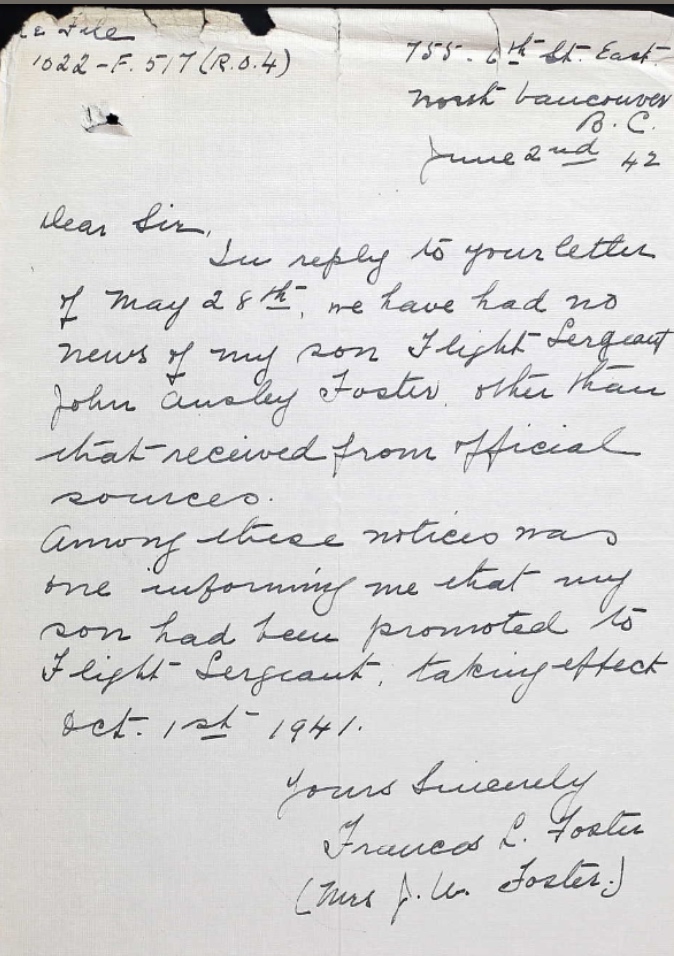 File
1022-F. 517 (R.O.4)
755. 6th St. East.
North Vancouver
B. C.
June 2nd 42
Dear Sir,
In reply to your letter
of May 28th, we have had no
news of my son Flight Sergeant
John Ansley Foster, other than
that received from official
sources.
Among these notices was
one informing me that my
son had been promoted to
Flight Sergeant, taking effect
Oct. 1st 1941.
Yours Sincerely
Frances L. Foster
(Mrs J. W. Foster.)